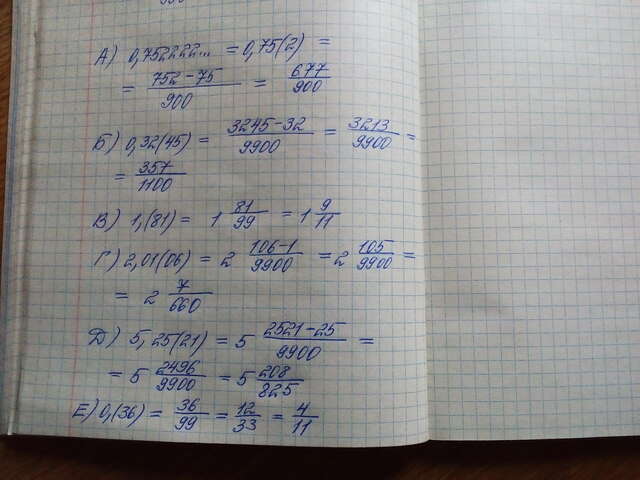 А) 0,752222... = 0,75(2) =
= 752-75/900 = 677/900
Б) 0,32(45) = 3245-32/9900 = 3213/9900 =
= 357/1100
В) 1,(81) = 1 81/99 = 1 9/11
Г) 2,01(06) = 2 106-1/9900 = 2 105/9900 =
= 2 7/660
Д) 5,25(21) = 5 2521-25/9900 =
= 5 2496/9900 = 5 208/825
Е) 0,(36) = 36/99 = 12/33 = 4/11